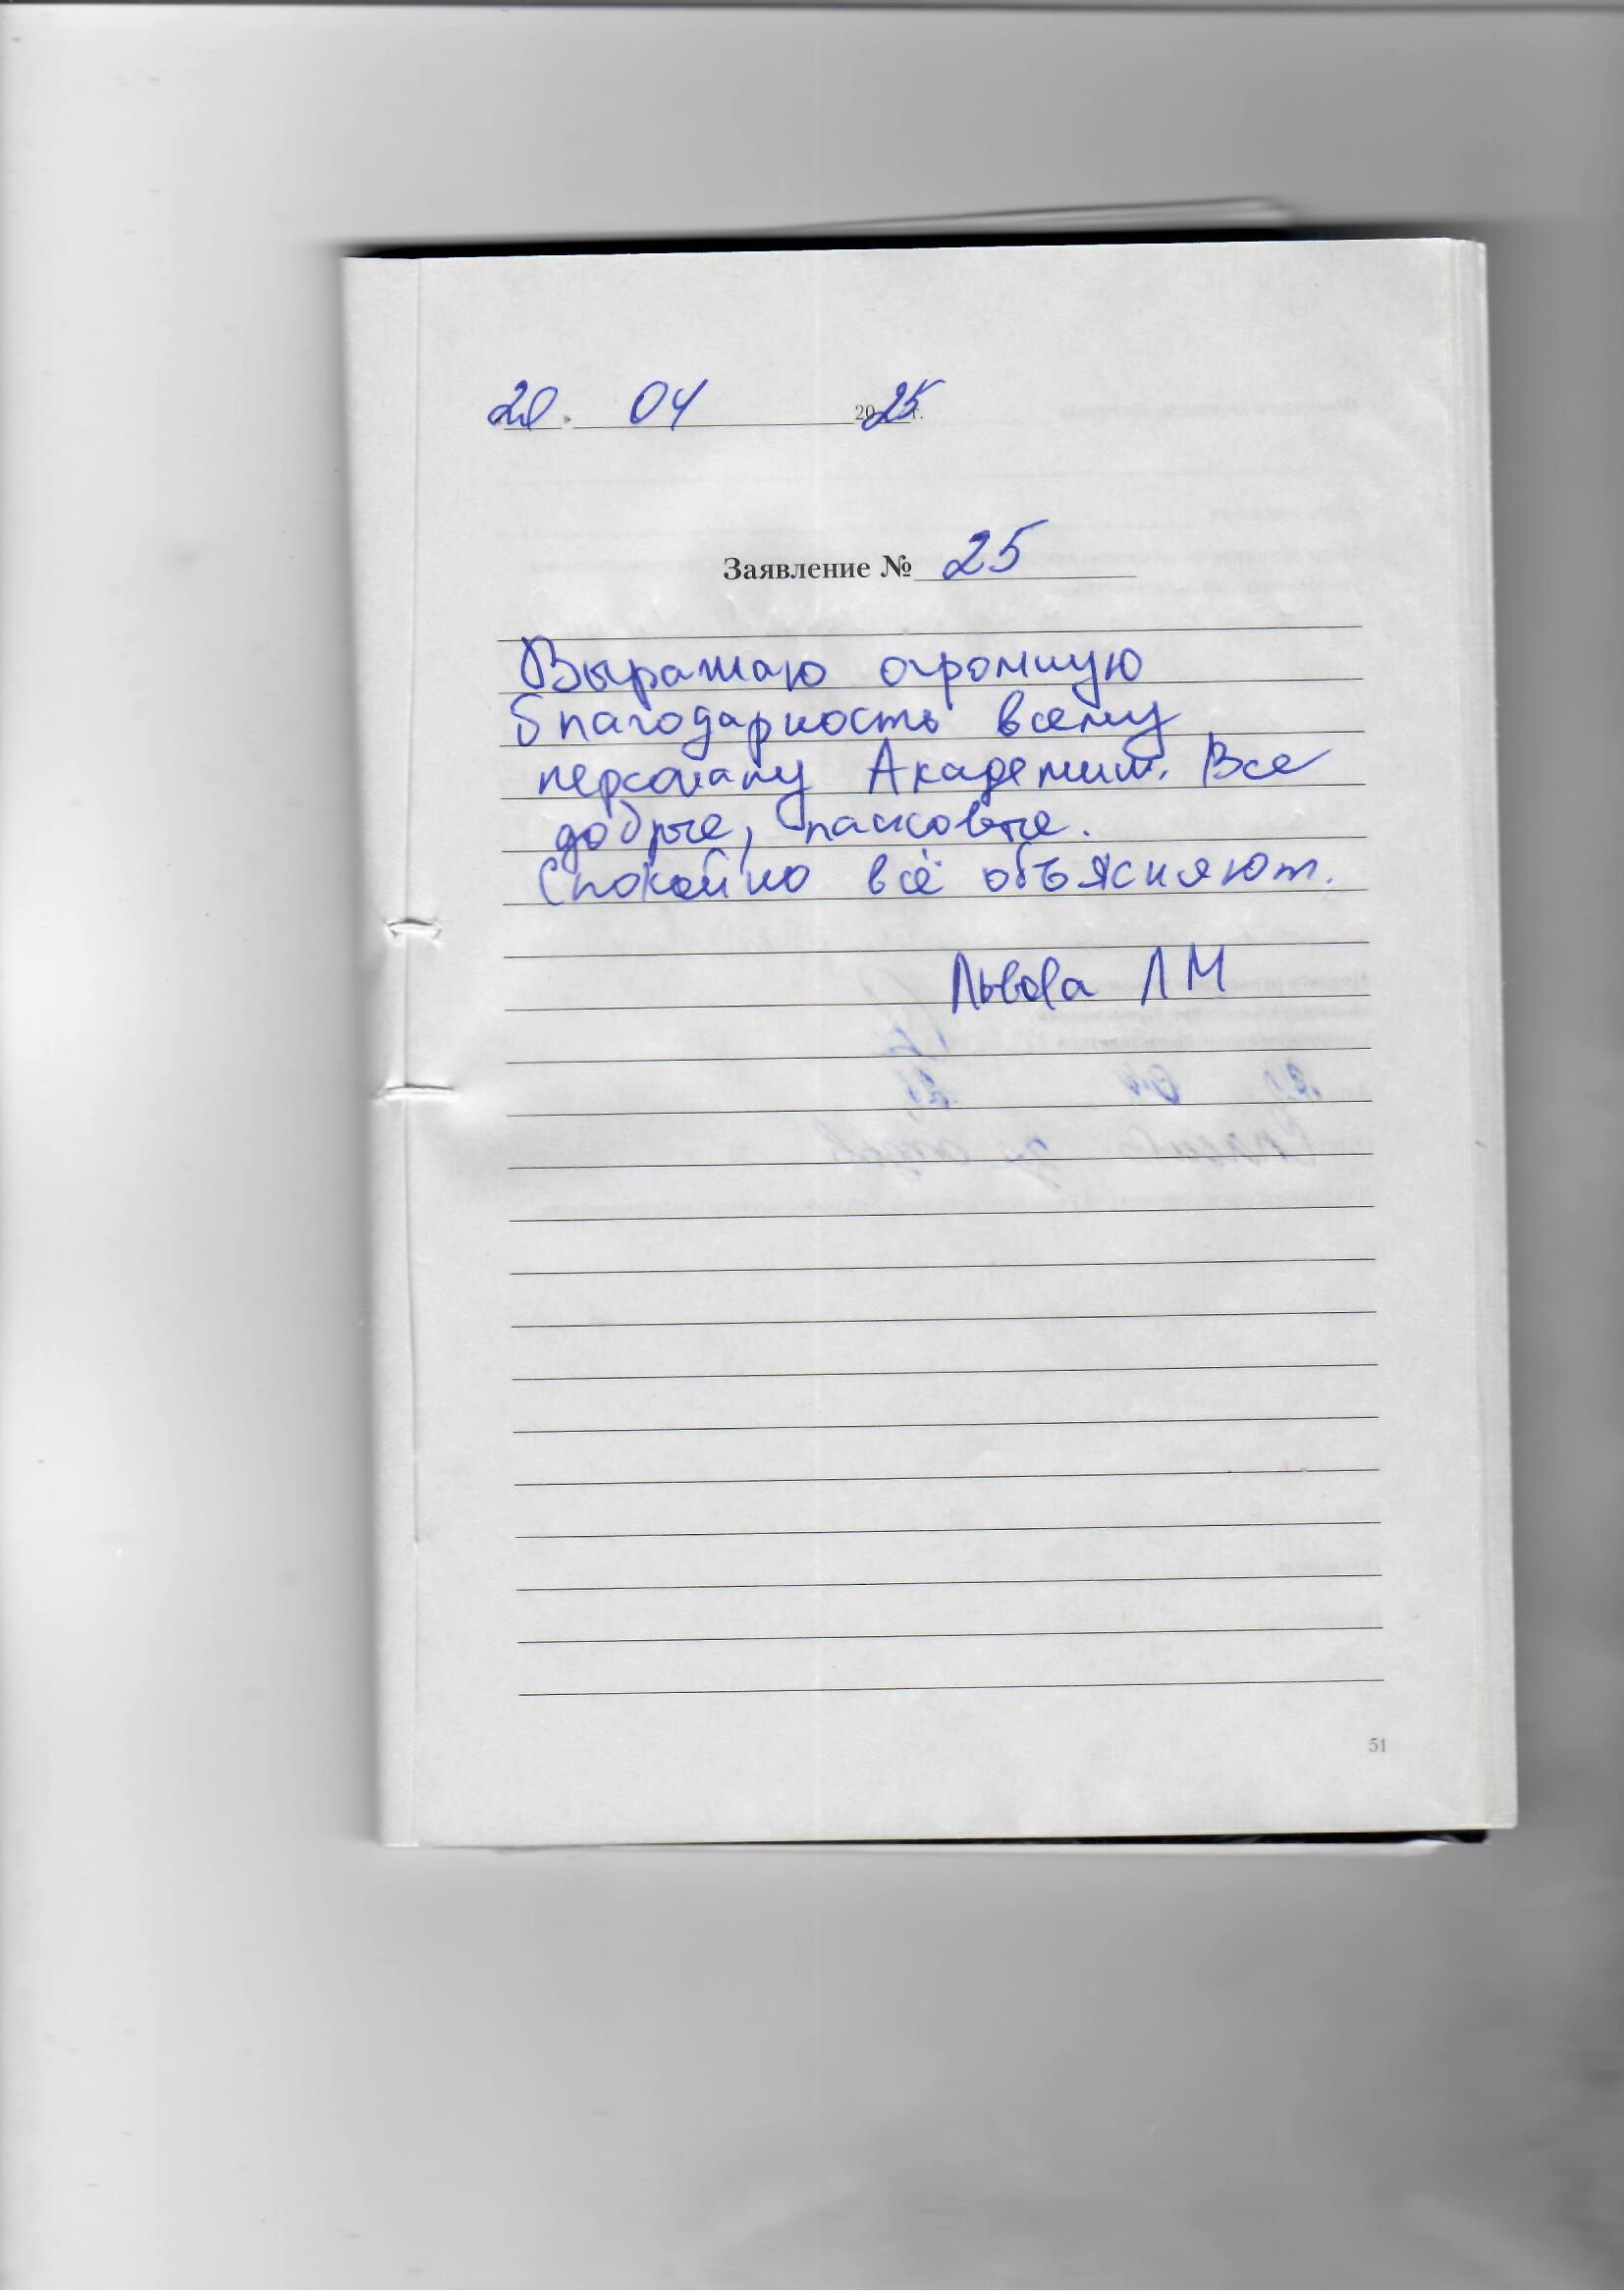 «20» 04 2025 г.
Заявление № 25
Выражаю огромную
благодарность всему
персоналу Академии. Все
добрые, ласковые.
Спокойно всё объясняют.
Львова Л М
51